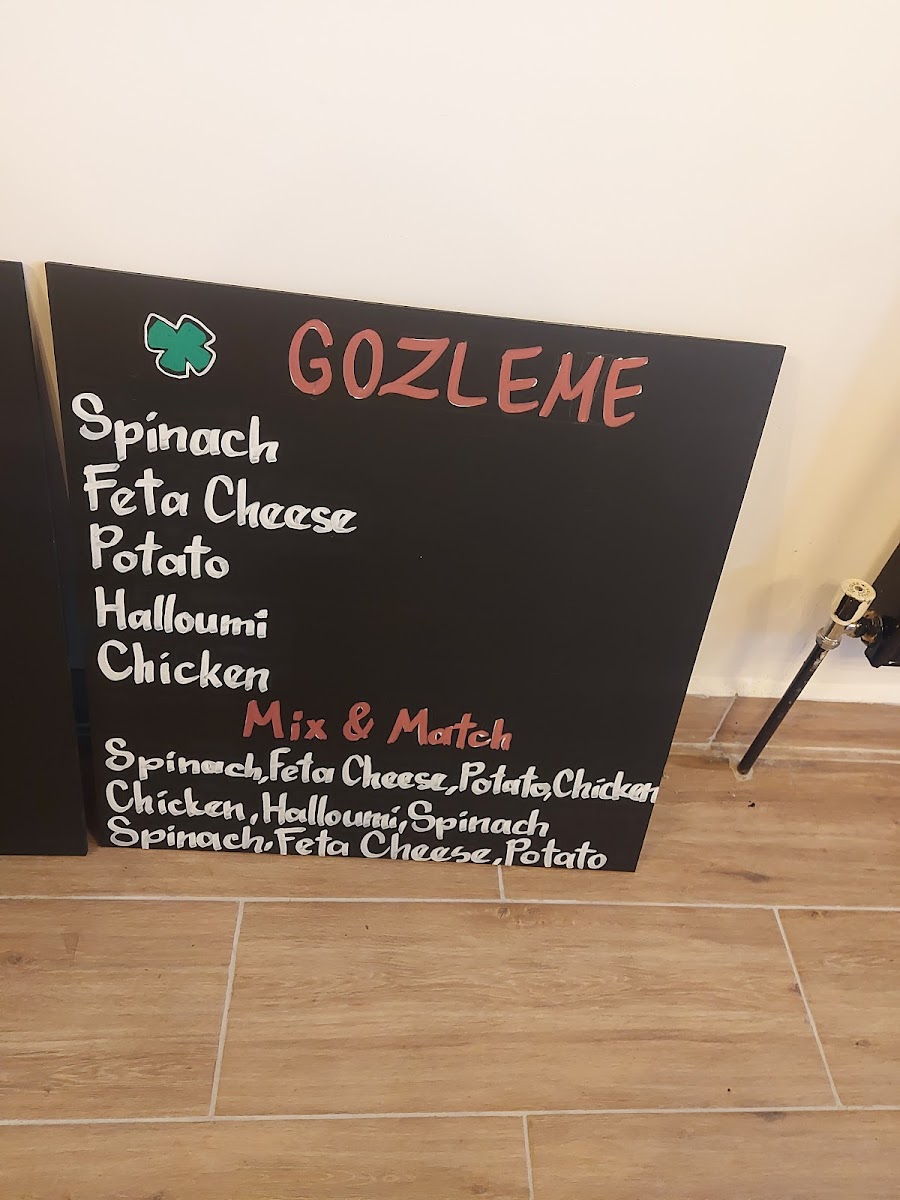 GOZLEME
Spinach
Feta Cheese
Potato
Halloumi
Chicken
Mix & Match
Spinach,Feta Cheese,Potato,Chicken
Chicken,Halloumi,Spinach
Spinach,Feta Cheese,Potato